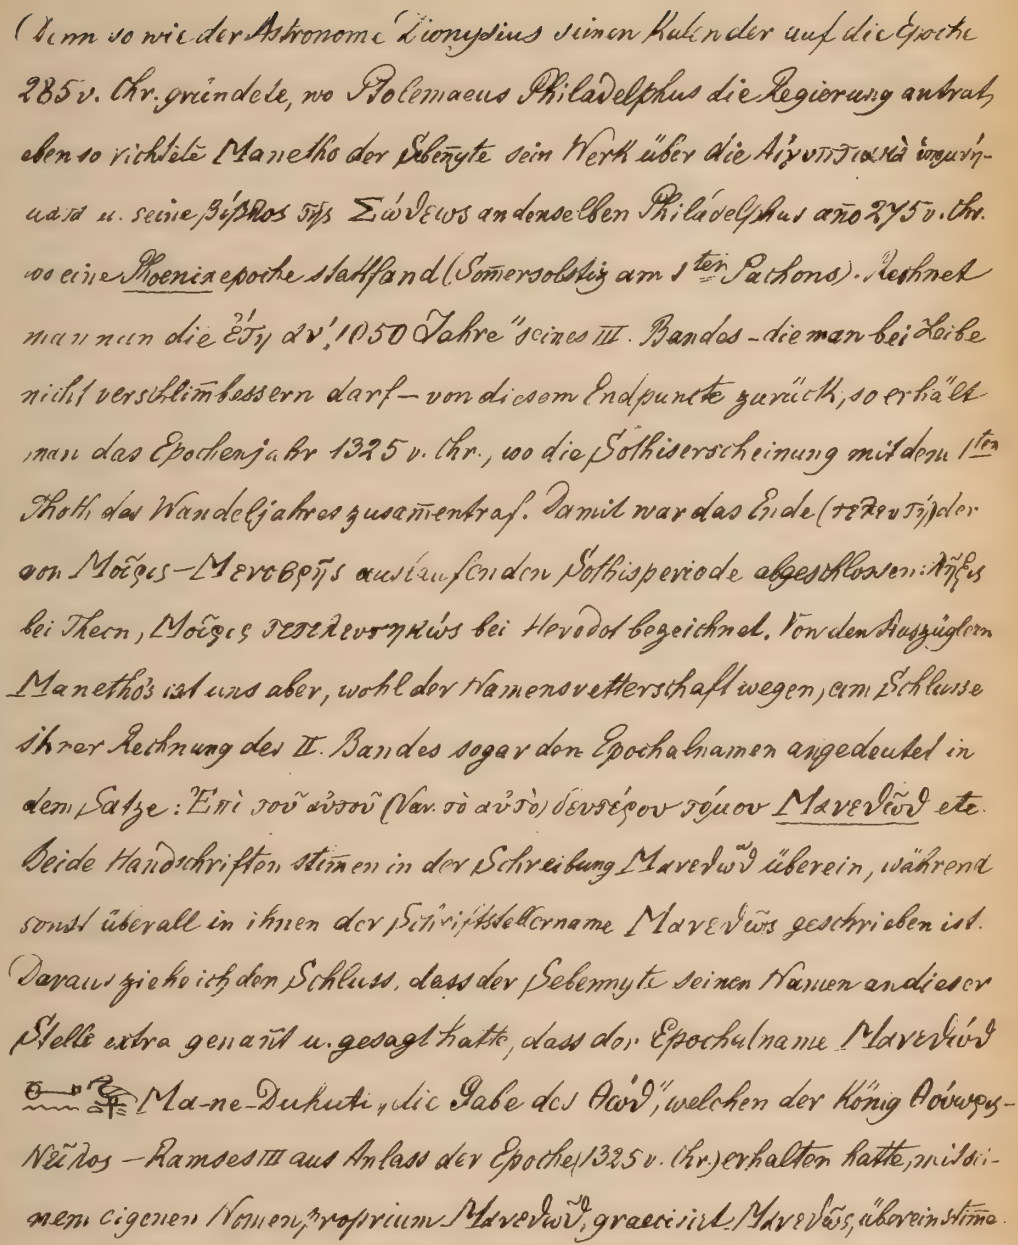 Denn so wie der Astronome Dionysius seinen Kalender auf die Epoche
285 v. Chr. gründete, wo Ptolemaeus Philadelphus die Regierung antrat,
ebenso richtete Manetho der Sebeñyte sein Werk über die Αἰγυπτιακὰ ὑπομνή-
ματα u. seine βίβλος τῆς Σώθεως an denselben Philadelphus año 275 v. Chr.
wo eine Phoenixepoche stattfand (Som̄ersolstiz am 1ten Pachons). Rechnet
man nun die ἔτη αν', 1050 Jahre" seines III. Bandes – die man bei Leibe
nicht verschlim̄bessern darf – von diesem Endpuncte zurück, so erhält
man das Epochenjahr 1325 v. Chr., wo die Sothiserscheinung mit dem 1ten
Thoth des Wandeljahres zusam̄entraf. Damit war das Ende (τελευτή) der
von Μοῖρις – Μενοφρῆς auslaufenden Sothisperiode abgeschlossen: λῆξις
bei Theon, Μοῖρις τετελευτηκώς bei Herodot bezeichnet. Von den Auszüglern
Manetho's ist uns aber, wohl der Namensvetterschaft wegen, am Schlusse
ihrer Rechnung des II. Bandes sogar den Epochalnamen angedeutet in
dem Satze: Ἐπὶ τοῦ αὐτοῦ (Var. τὸ αὐτὸ) δευτέρου τόμου Μανεθῶθ etc.
Beide Handschriften stim̄en in der Schreibung Μανεθῶθ überein, während
sonst überall in ihnen der Schriftstellername Μανεθῶς geschrieben ist.
Daraus ziehe ich den Schluss, dass der Sebennyte seinen Namen an dieser
Stelle extra genañt u. gesagt hatte, dass der Epochalname Μανεθώθ
Ma-ne-Duhuti „die Gabe des Θώθ", welchen der König Θούωρις-
Νεῖλος – Ramses III aus Anlass der Epoche (1325 v. Chr.) erhalten hatte, mit sei-
nem eigenen Nomen proprium Μανεθῶθ, graecisirt Μανεθῶς, übereinstim̄e.